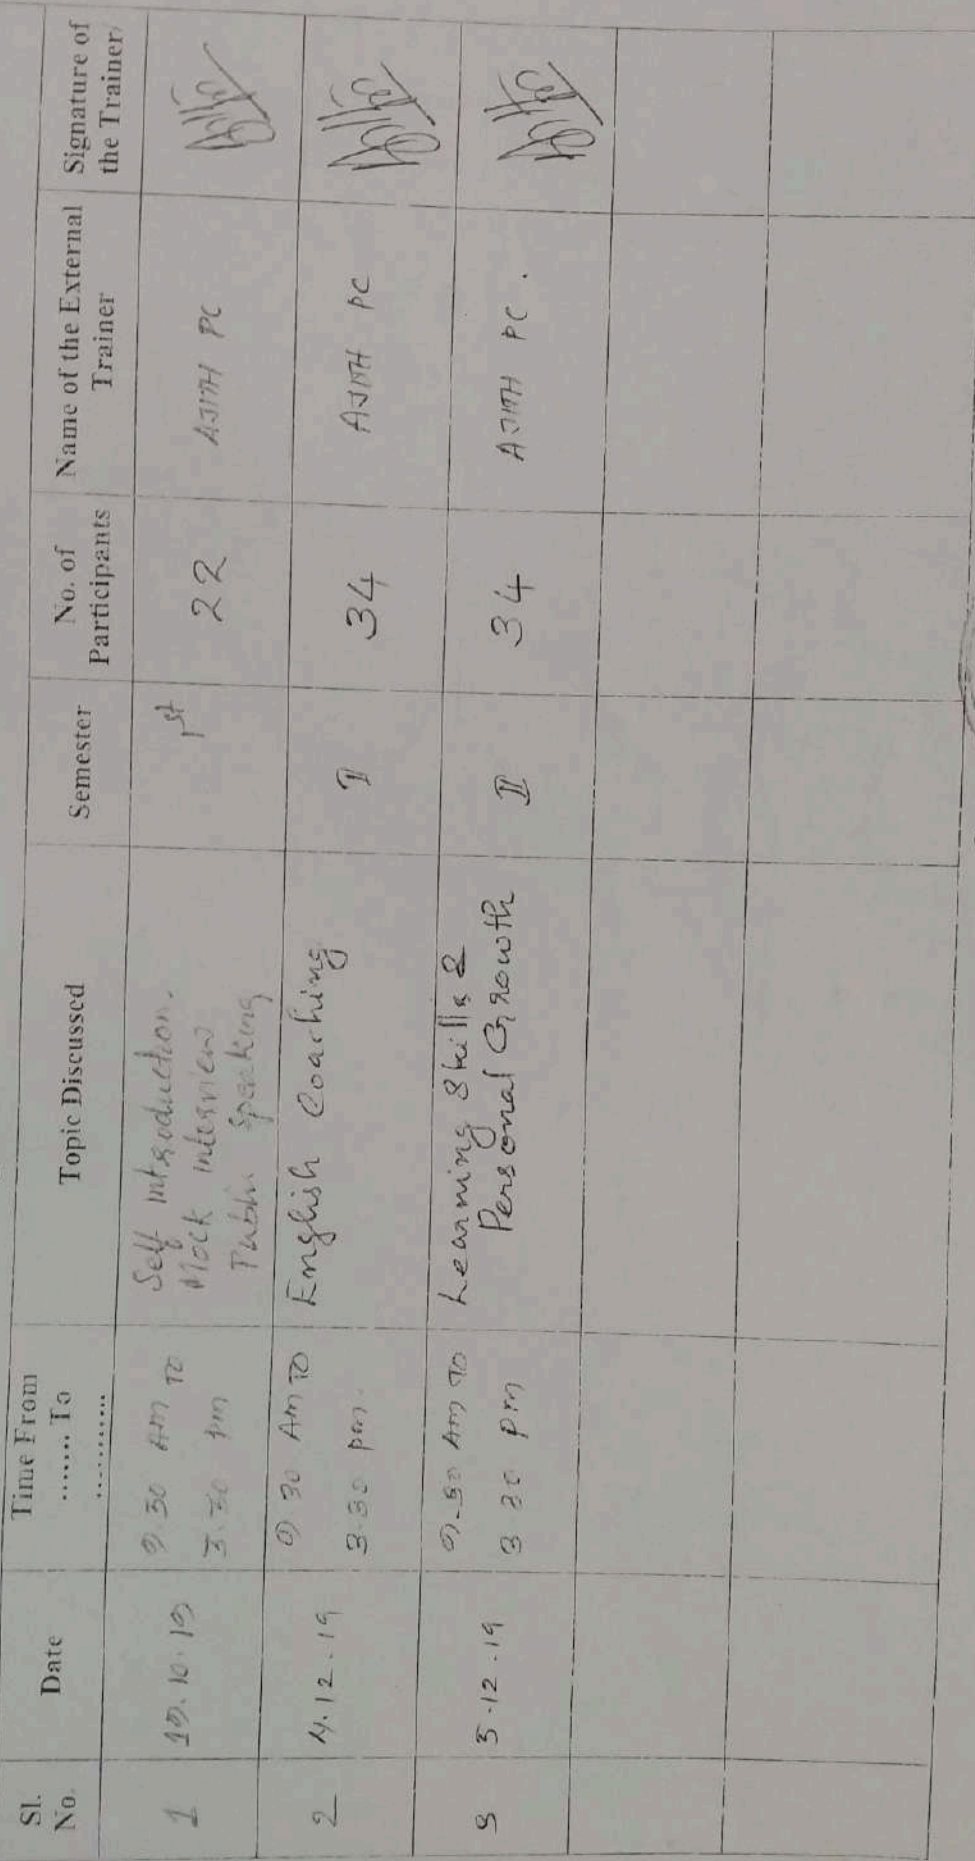 Sl. No.
Date
Time From
....... To
...........
Topic Discussed
Semester
No. of
Participants
Name of the External
Trainer
Signature of
the Trainer
1
19.10.19
9.30 AM TO
3.30 pm
Self introduction.
Mock interview
Public Speaking
1st
22
AJITH PC
2
4.12.19
9 30 AM TO
3.30 pm.
English Coaching
34
AJITH PC
3
5.12.19
9.30 AM TO
3 30 pm
Learning Skills &
Personal Growth
II
34
AJITH PC.